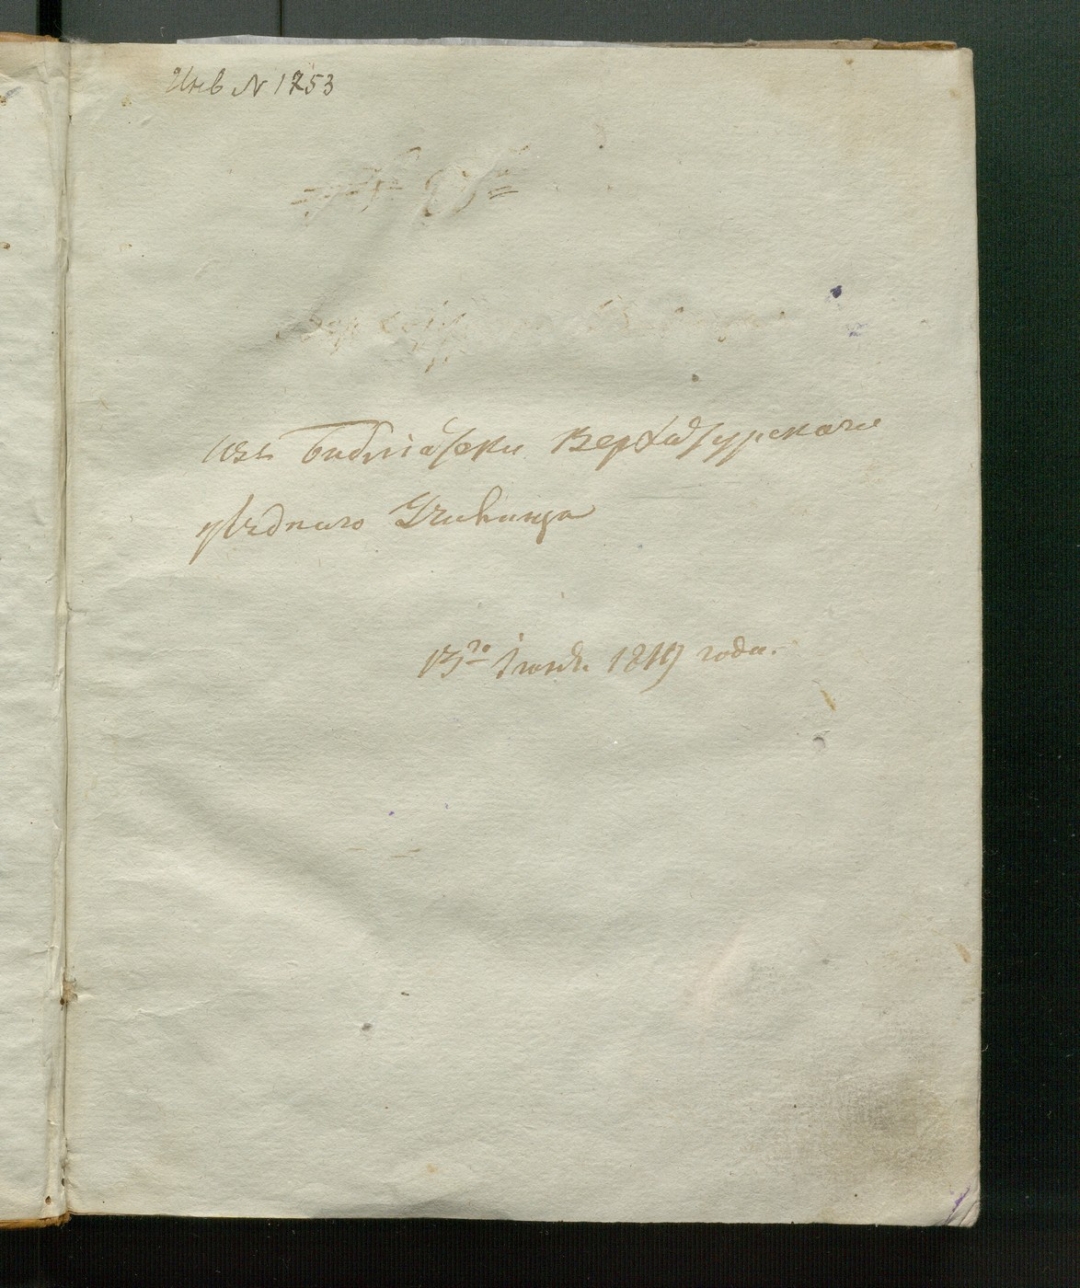 Инв № 1253
Изъ Библіотеки Верхотурскаго
уѣзднаго Училища
13го Іюня 1819 года.